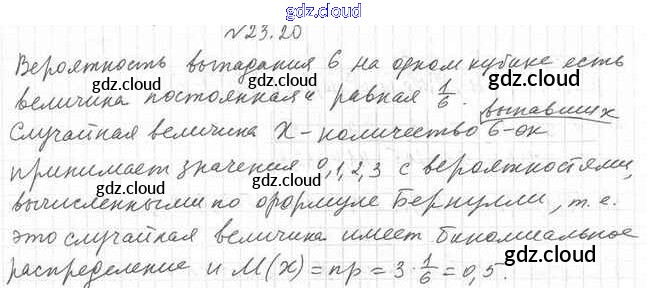 gdz.cloud
№23.20
Вероятность выпадания 6 на одном кубике есть
gdz.cloud gdz.cloud
величина постоянная и равная 1/6.
выпавших
Случайная величина X - количество 6-ок
gdz.cloud gdz.cloud
принимает значения 0,1,2,3 с вероятностями,
gdz.cloud
вычисленными по формуле Бернулли, т.е.
gdz.cloud
это случайная величина имеет биномиальное
gdz.cloud
распределение и M(x) = np = 3·1/6 = 0,5.
gdz.cloud
gdz.cloud